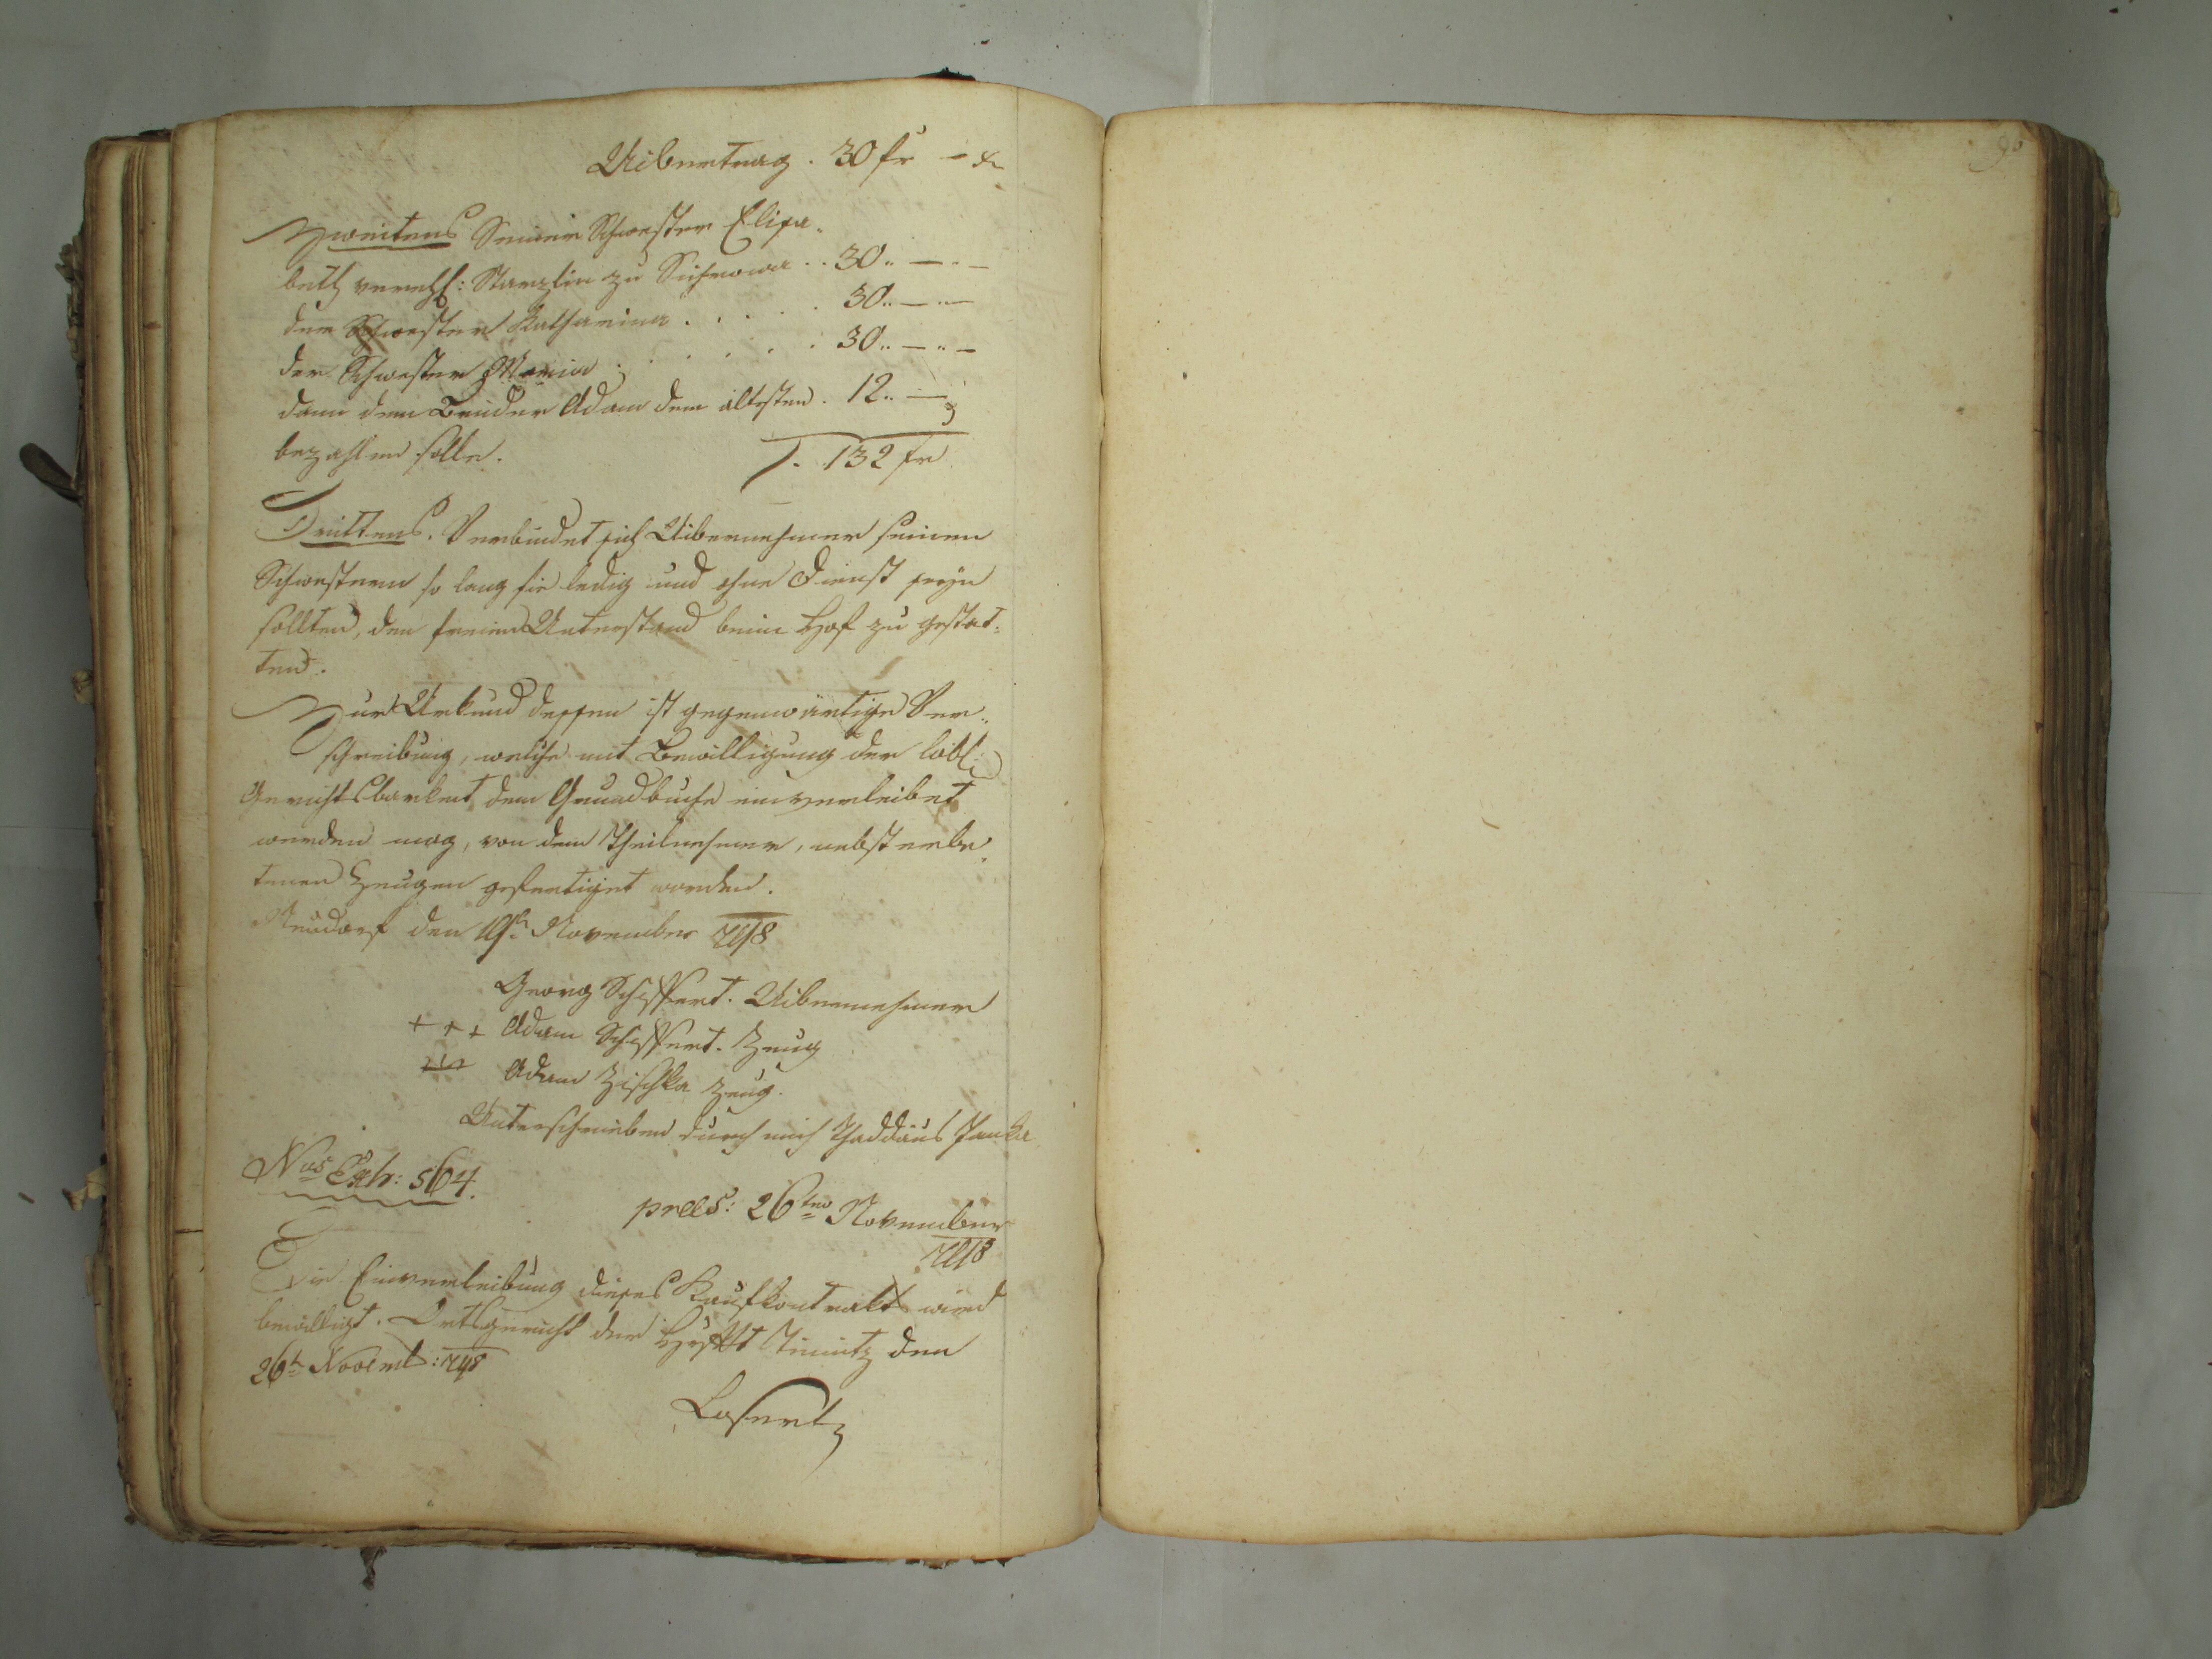 Uibertrag . 30 fr — x
Zweitens Seiner Schwester Elisa-
beth verehl: Starzlin zu .. 30.. — . —
der Schwester Katharina . . . . . 30.. — .. —
der Schwester Maria . . . . . . 30.. — .. —
dann dem Bruder Adam dem ältesten . 12.. —
bezahlen solle. S. 132 fr
Drittens. Verbindet sich Uibernehmer seinen
Schwestern so lang sie ledig und ohne Dienst seyn
sollten, den freien Unterstand beim Hof zu gestat-
ten.
Zur Urkund dessen ist gegenwärtige Ver-
schreibung, welche mit Bewilligung der löbl:
Gerichtsbarkeit dem Grundbuche einverleibet
werden mag, von dem Theilnehmer, nebst erbe-
tenen Zeugen gefertiget worden.
Neudorf den November
Georg Schiffert. Uibernehmer
+ + + Adam Schiffert. Zeug
+++ Adam Zischka Zeug.
Unterschrieben durch mich Thaddäus Janka
Nus Exh: 564.
praes: 26ten November
Die Einverleibung dieses Kaufkontrakts wird
bewilligt. Ortsgericht der Hrschft den
26t Novemb:
Losert
90